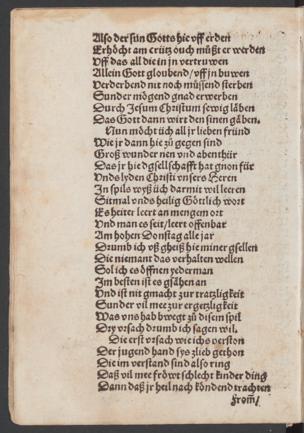 Also der sun Gotts hie vff erden
Erhöcht am crütz ouch müßt er werden
Vff das all die in jn vertruwen
Allein Gott gloubend/ vff jn buwen
Verderbend nit noch müssend sterben
Sunder mögend gnad erwerben
Durch Jesum Christum ewig läben
Das Gott dann wirt den sinen gäben.
Nun möcht üch all jr lieben fründ
Wie jr dann hie zů gegen sind
Groß wunder nen vnd abenthür
Das jr hie dgsellschafft hat gnon für
Vnds lyden Christi vnsers Heren
In spils wyß üch darmit wil leeren
Sitmal vnds heilig Göttlich wort
Es heiter leert an mengem ort
Vnd man es seit/ leert offenbar
Am hohen Donstag alle jar
Drumb ich vß gheiß hie miner gsellen
Die niemant das verhalten wellen
Sol ich es öffnen yederman
Im besten ist es gsähen an
Vnd ist nit gmacht zur tratzligkeit
Sunder vil mee zur ergetzligkeit
Was vns hab bwegt zů disem spil
Dry vrsach drumb ich sagen wil.
Die erst vrsach wie ichs verston
Der jugend hand sys zlieb gethon
Die im verstand sind also ring
Das vil mee fröwt schlecht kinder ding
Dann daß jr heil nach köndend trachten
From̃/